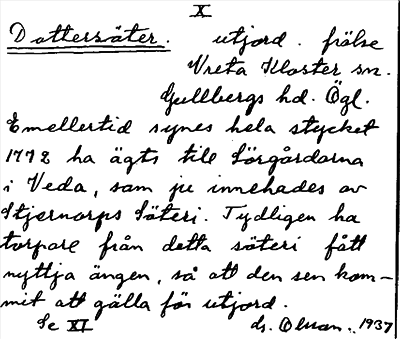 X
Dottersäter. utjord. frälse
Vreta Kloster sn.
Gullbergs hd. Ögl.
Emellertid synes hela stycket
1772 ha ägts till Sörgårdarna
i Veda, som ju innehades av
Stjernorps Säteri. Tydligen ha
torpare från detta säteri fått
nyttja ängen, så att den sen kom-
mit att gälla för utjord.
Se XI ds. Olsson.. 1937